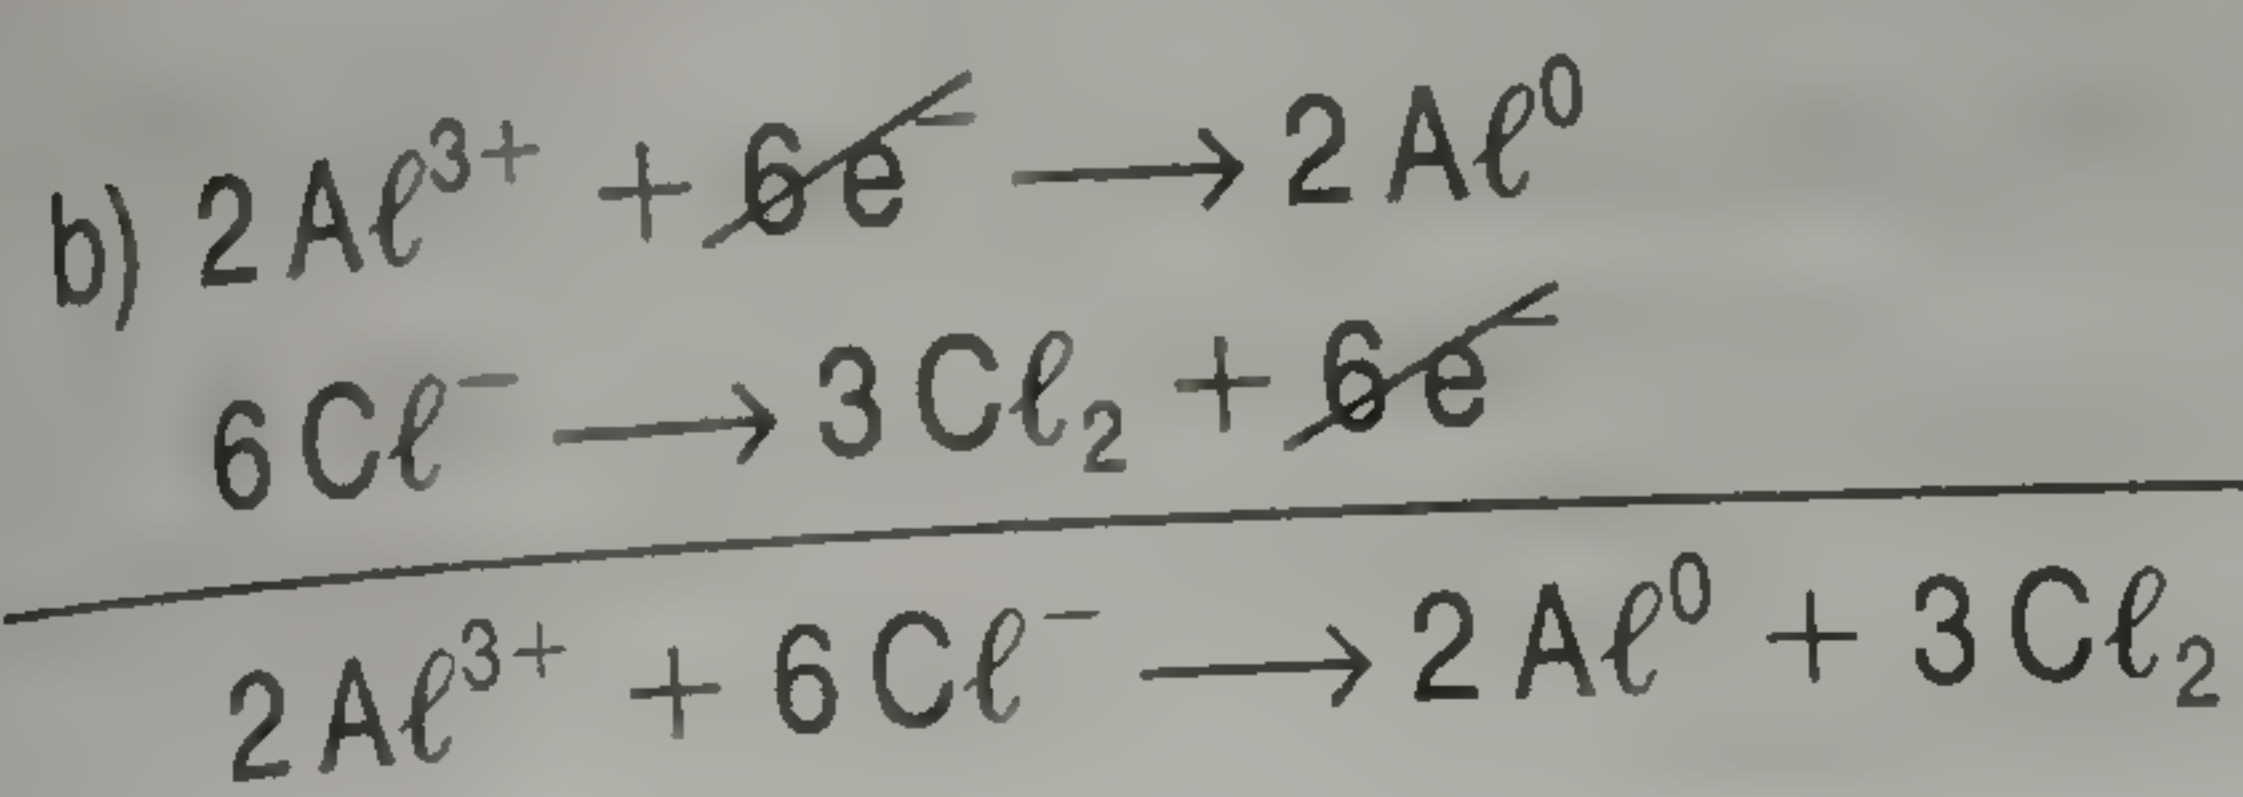 b) 2Aℓ³⁺ + 6e⁻ ⟶ 2Aℓ⁰
6Cℓ⁻ ⟶ 3Cℓ₂ + 6e⁻
2Aℓ³⁺ + 6Cℓ⁻ ⟶ 2Aℓ⁰ + 3Cℓ₂